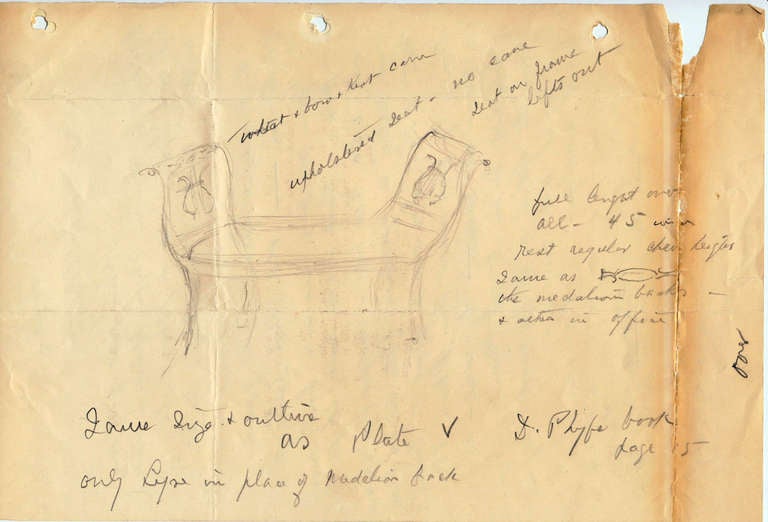 wheat & bow & knot carv
upholstered seat - no cane
seat on frame
lifts out
full lengt over
all - 45 in
rest regular chair heigts
same as
the medalion backs -
& other in office
over
Same size & outline
as Plate V
only Lyre in place of medalion back
D. Phyfe book
page 15